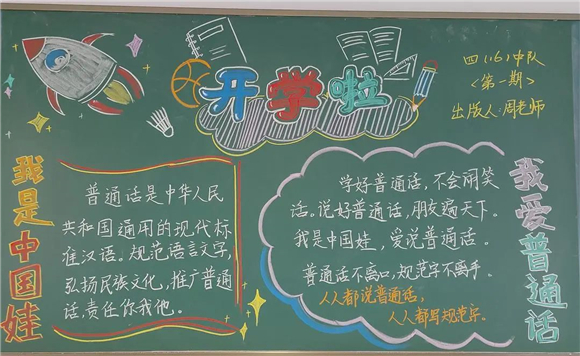 开学啦
四（6）中队
<第一期>
出版人：周老师
我是中国娃
普通话是中华人民
共和国通用的现代标
准汉语。规范语言文字，
弘扬民族文化，推广普通
话责任你我他。
学好普通话，不会闹笑
话。说好普通话，朋友遍天下。
我是中国娃，爱说普通话。
普通话不离口，规范字不离手。
人人都说普通话，
人人都写规范字。
我爱普通话